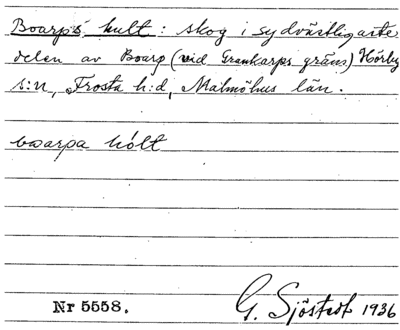 Boarps hult: skog i sydvästligaste
delen av Boarp (vid Grankarps gräns) Hörby
s:n, Frosta h:d, Malmöhus län.
boarpa hólt
Nr 5558.
G. Sjöstedt 1936